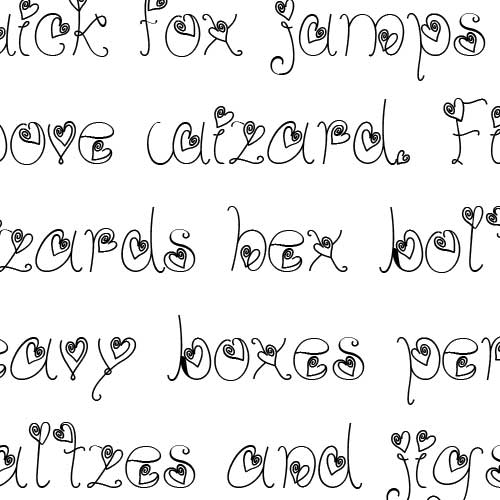 uick fox jumps
bove wizard. Fi
zards hex bolt
eavy boxes per
altzes and jigs